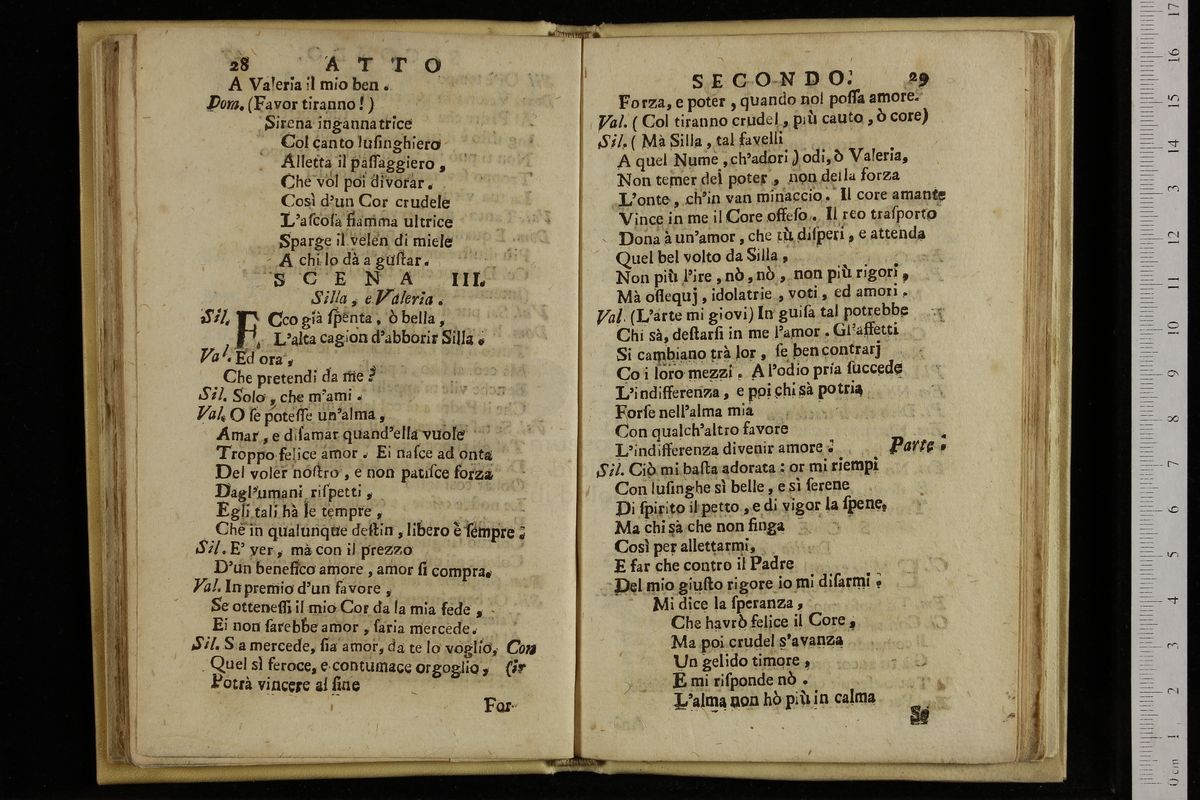 28 ATTO
A Valeria il mio ben.
Dom. (Favor tiranno!)
Sirena ingannatrice
Col canto luſinghiero
Alletta il paſſaggiero,
Che vol poi divorar.
Così d'un Cor crudele
L'aſcoſa fiamma ultrice
Sparge il velen di miele
A chi lo dà a guſtar.
SCENA III.
Silla, e Valeria.
Sil. ECco già ſpenta, ò bella,
L'alta cagion d'abborir Silla.
Val. Ed ora,
Che pretendi da me?
Sil. Solo, che m'ami.
Val. O ſe poteſſe un'alma,
Amar, e diſamar quand'ella vuole
Troppo felice amor. Ei naſce ad onta
Del voler noſtro, e non patiſce forza
Dagl'umani riſpetti,
Egli tali hà le tempre,
Che in qualunque deſtin, libero è ſempre:
Sil. E' ver, mà con il prezzo
D'un benefico amore, amor ſi compra.
Val. In premio d'un favore,
Se otteneſſi il mio Cor da la mia fede,
Ei non ſarebbe amor, ſaria mercede.
Sil. Sa mercede, ſia amor, da te lo voglio, Con
Quel sì feroce, e contumace orgoglio, (ir
Potrà vincere al fine
For-
SECONDO. 29
Forza, e poter, quando nol poſſa amore.
Val. (Col tiranno crudel, più cauto, ò core)
Sil. (Mà Silla, tal favelli
A quel Nume, ch'adori) odi, ò Valeria,
Non temer del poter, non della forza
L'onte, ch'in van minaccio. Il core amante
Vince in me il Core offeſo. Il reo traſporto
Dona à un'amor, che tù diſperi, e attenda
Quel bel volto da Silla,
Non più l'ire, nò, nò, non più rigori,
Mà oſſequj, idolatrie, voti, ed amori.
Val. (L'arte mi giovi) In guiſa tal potrebbe
Chi sà, deſtarſi in me l'amor. Gl'affetti
Si cambiano trà lor, ſe ben contrarj
Co i loro mezzi. A l'odio pria ſuccede
L'indifferenza, e poi chi sà potria
Forſe nell'alma mia
Con qualch'altro favore
L'indifferenza divenir amore. Parte.
Sil. Ciò mi baſta adorata: or mi riempi
Con luſinghe sì belle, e sì ſerene
Di ſpirito il petto, e di vigor la ſpene,
Ma chi sà che non finga
Così per allettarmi,
E far che contro il Padre
Del mio giuſto rigore io mi diſarmi?
Mi dice la ſperanza,
Che havrò felice il Core,
Ma poi crudel s'avanza
Un gelido timore,
E mi riſponde nò.
L'alma non hò più in calma
Se